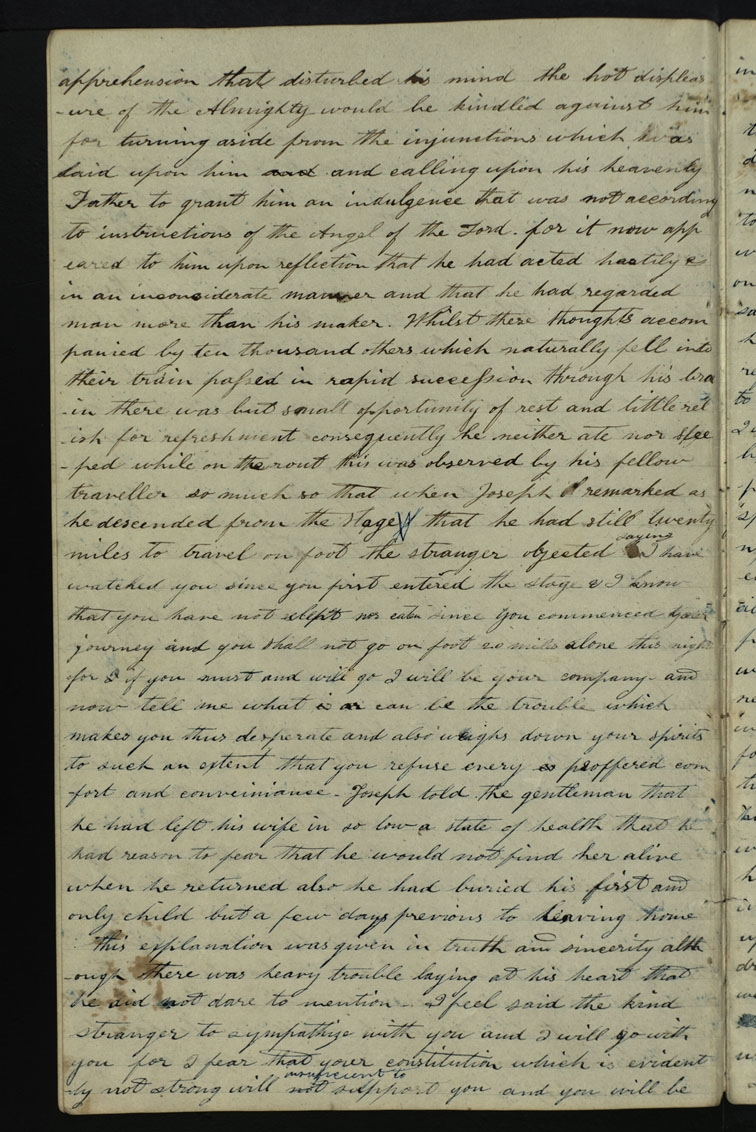 apprehension that disturbed his mind the hot displeas
-ure of the Almighty would be kindled against him
for turning aside from the injunctions which was
laid upon him and and calling upon his heavenly
Father to grant him an indulgence that was not according
to instructions of the Angel of the Lord. for it now app
eared to him upon reflection that he had acted hastily &
in an inconsiderate manner and that he had regarded
man more than his maker. Whilst these thoughts accom
panied by ten thousand others which naturally fell into
their train passed in rapid succession through his bra
-in there was but small opportunity of rest and little rel
-ish for refreshment consequently he neither ate nor slee
-ped while on the rout this was observed by his fellow
traveller so much so that when Joseph remarked as
he descended from the stage that he had still twenty
miles to travel on foot the stranger objected saying I have
watched you since you first entered the stage & I know
that you have not slept nor eaten since you commenced your
journey and you shall not go on foot 20 miles alone this night
for if you must and will go I will be your company- and
now tell me what is or can be the trouble which
makes you thus desperate and also weighs down your spirits
to such an extent that you refuse every proffered com
-fort and conveiniance- Joseph told the gentleman that
he had left his wife in so low a state of health that he
had reason to fear that he would not find her alive
when he returned also he had buried his first and
only child but a few days previous to leaving home
this explanation was given in truth and sincerity alth
-ough there was heavy trouble laying at his heart that
he did not dare to mention- I feel said the kind
stranger to sympathise with you and I will go with
you for I fear that your constitution which is evident
-ly not strong will insuficient to not support you and you will be